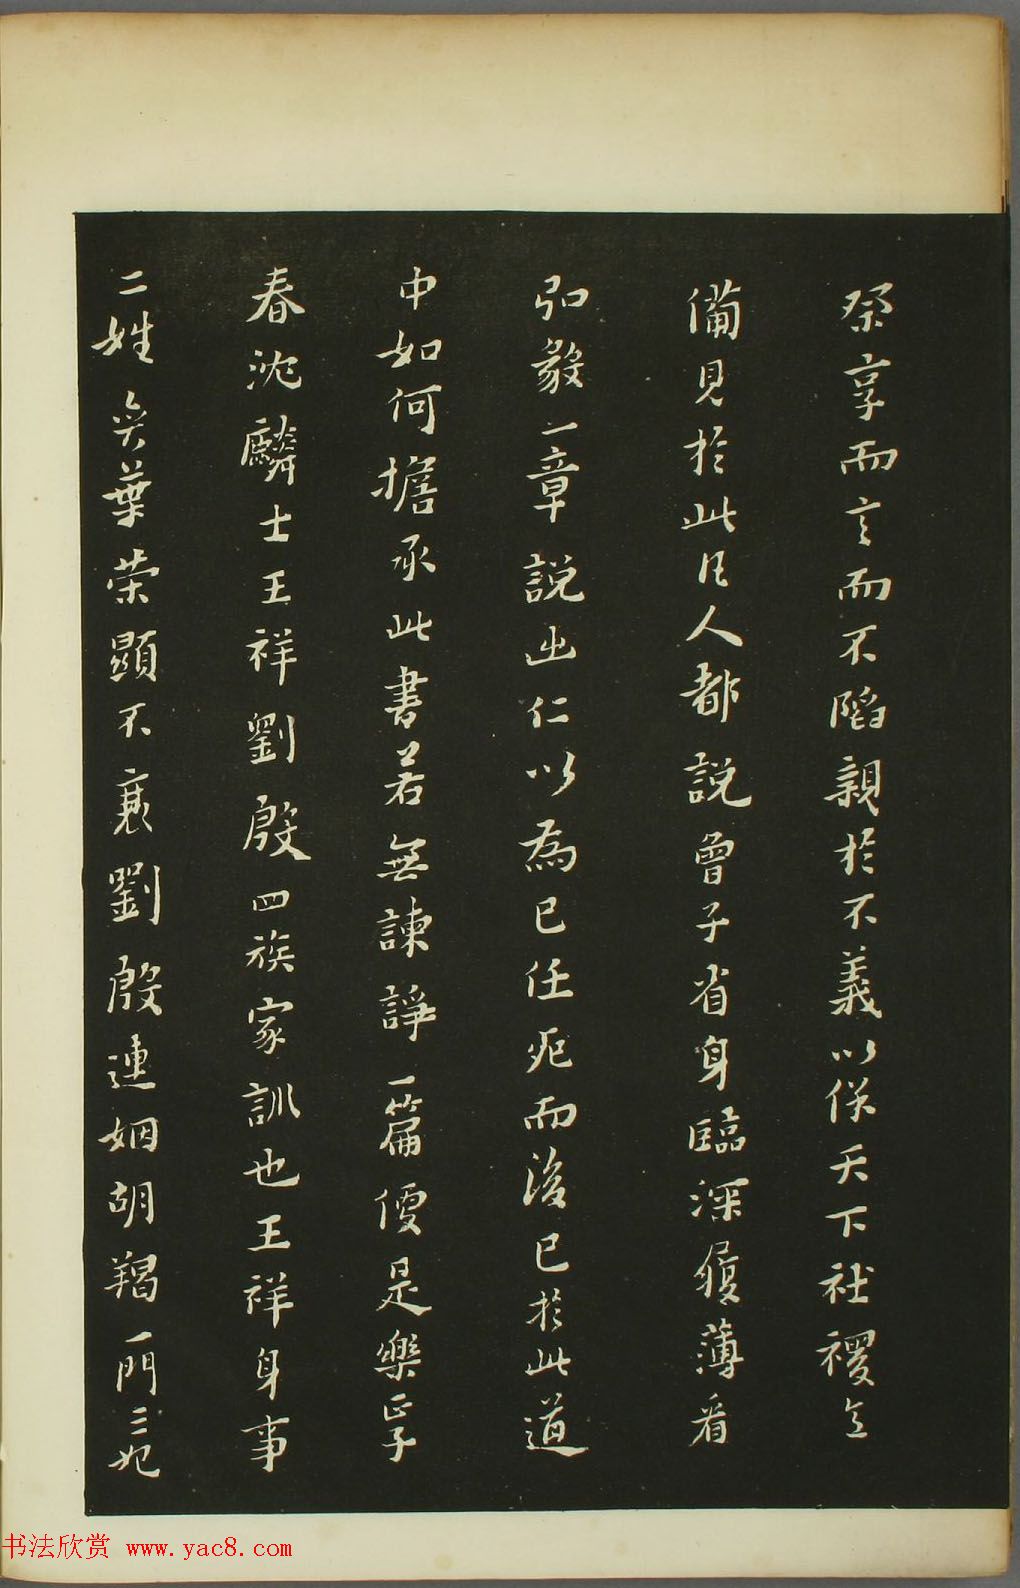 祭享而言而不陷親於不義以保天下社稷之
備見於此凡人都說曾子省身臨深履薄看
弘毅一章說出仁以為己任死而後已於此道
中如何擔承此書若無諫諍一篇便是樂正子
春沈麟士王祥劉殷四族家訓也王祥身事
二姓奕葉榮顯不衰劉殷連姻胡羯一門三妃
书法欣赏 www.yac8.com